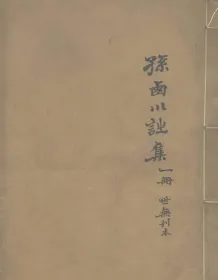 孫西川詿集一冊 世無刊本